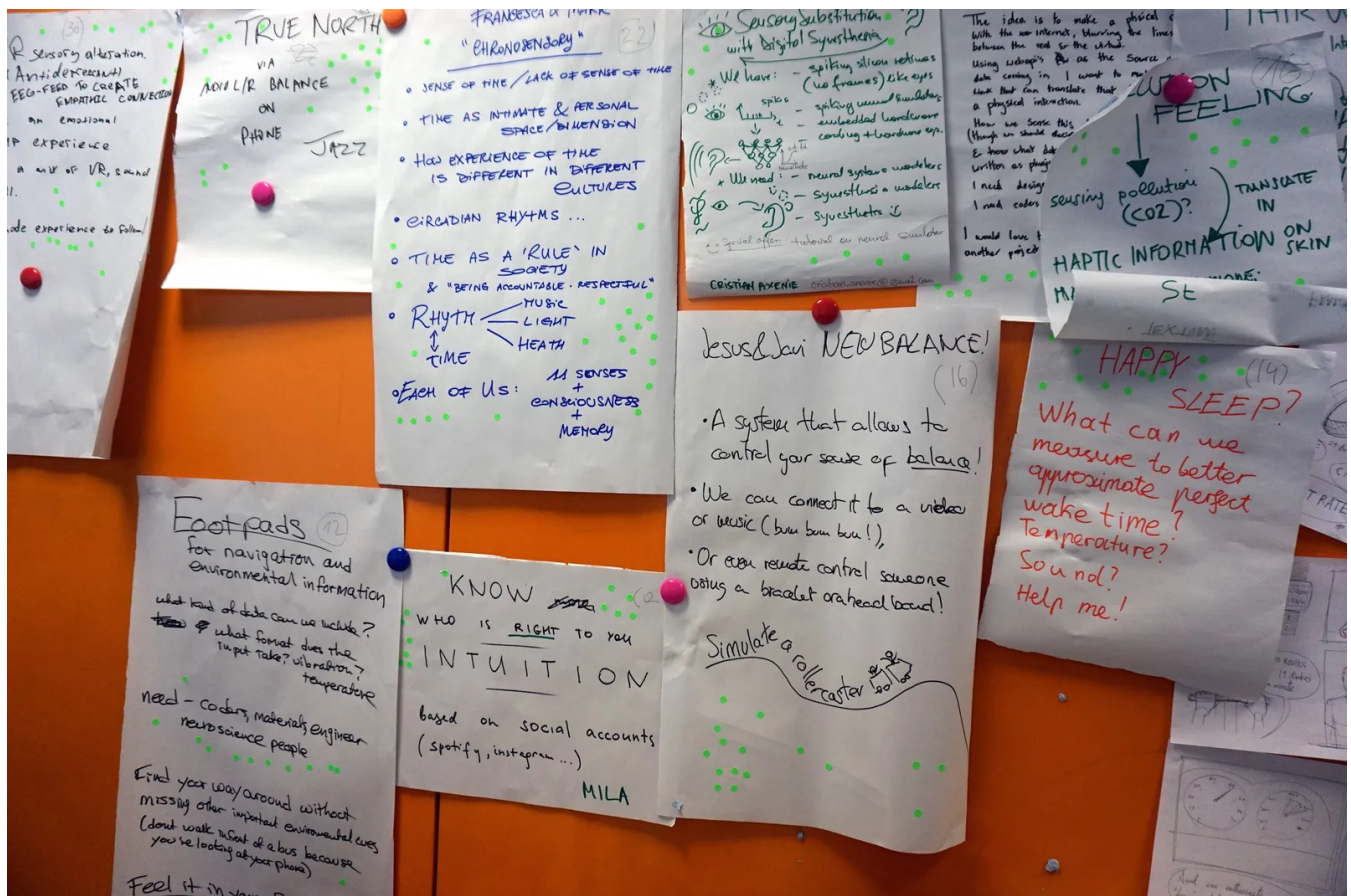 (30)
R sensory alteration.
EEG-FEED TO CREATE
EMPATHIC CONNECTION
an emotional
experience
a mix of VR, sound
ode experience to follow
TRUE NORTH
VIA
L/R BALANCE
ON
PHONE
JAZZ
FRANCESCA & MARK
"CHRONOSENSORY"
(22)
• SENSE OF TIME / LACK OF SENSE OF TIME
• TIME AS INTIMATE & PERSONAL
SPACE/DIMENSION
• HOW EXPERIENCE OF TIME
IS DIFFERENT IN DIFFERENT
CULTURES
• CIRCADIAN RHYTMS ...
• TIME AS A 'RULE' IN
SOCIETY
& "BEING ACCOUNTABLE - RESPECTFUL"
• RHYTM
MUSIC
LIGHT
HEATH
TIME
• EACH OF US:
11 SENSES
+
CONSCIOUSNESS
+
MEMORY
Sensory Substitution
with Digital Synesthesia
* We have: - spiking silicon retinas
(no frames) like eyes
spikes
- spiking neural simulators
- embedded hardware
coding + hardware exp.
* We need: - neural systems modelers
- synesthesia modelers
- synesthets
Special offer tutorial on neural simulator
CRISTIAN AXENIE
The idea is to make a phsical
with the internet, blurring the lines
between the real & the virtual.
Using as the source
data coming in I want to
that can translate that
a physical interaction.
How we sense this
written as
I need design
I need coders
I would love t
another project
(16)
FEELING
sensing pollution
(CO2)?
TRANSLATE
IN
HAPTIC INFORMATION ON
SKIN
St
HAPPY
(14)
SLEEP?
What can we
measure to better
approximate perfect
wake time?
Temperature?
Sound?
Help me!
Jesus & Javi NEW BALANCE!
(16)
• A system that allows to
control your sense of balance!
• We can connect it to a video
or music (bum bum bum!),
• Or even remote control someone
using a bracelet or a headband!
Simulate a rollercaster
Footpads
12
for navigation and
environmental information
what kind of data can we include?
what format does the
input take? vibration?
temperature
need - coders, materials, engineer
neuroscience people
Find your way around without
missing other important enviromental cues
(dont walk infront of a bus because
you're looking at your phone)
Feel it in your
KNOW
(12
WHO IS RIGHT TO YOU
INTUITION
based on social accounts
(spotify, instagram ...)
MILA